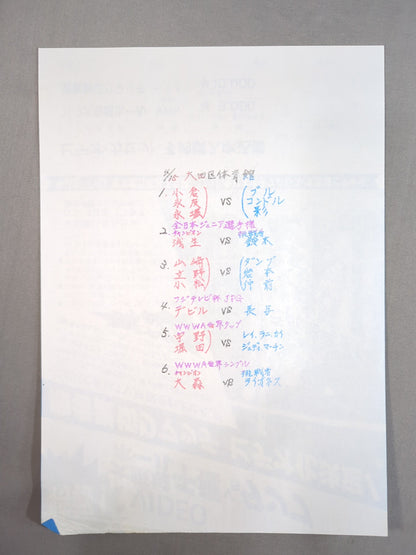 大田区体育館
1. 小倉 ブル
永友 vs コンドル
永堀 影
全日本ジュニア選手権
2. チャンピオン 挑戦者
浅生 vs 鈴木
3. 山崎 ダンプ
立野 vs
小松
フジテレビ杯
4. デビル vs 長与
WWWA世界タッグ
5. 宇野 レイ,ラニ,カイ
堀田 vs ジュディ,マーチン
WWWA世界シングル
6. チャンピオン 挑戦者
大森 vs ライオネス